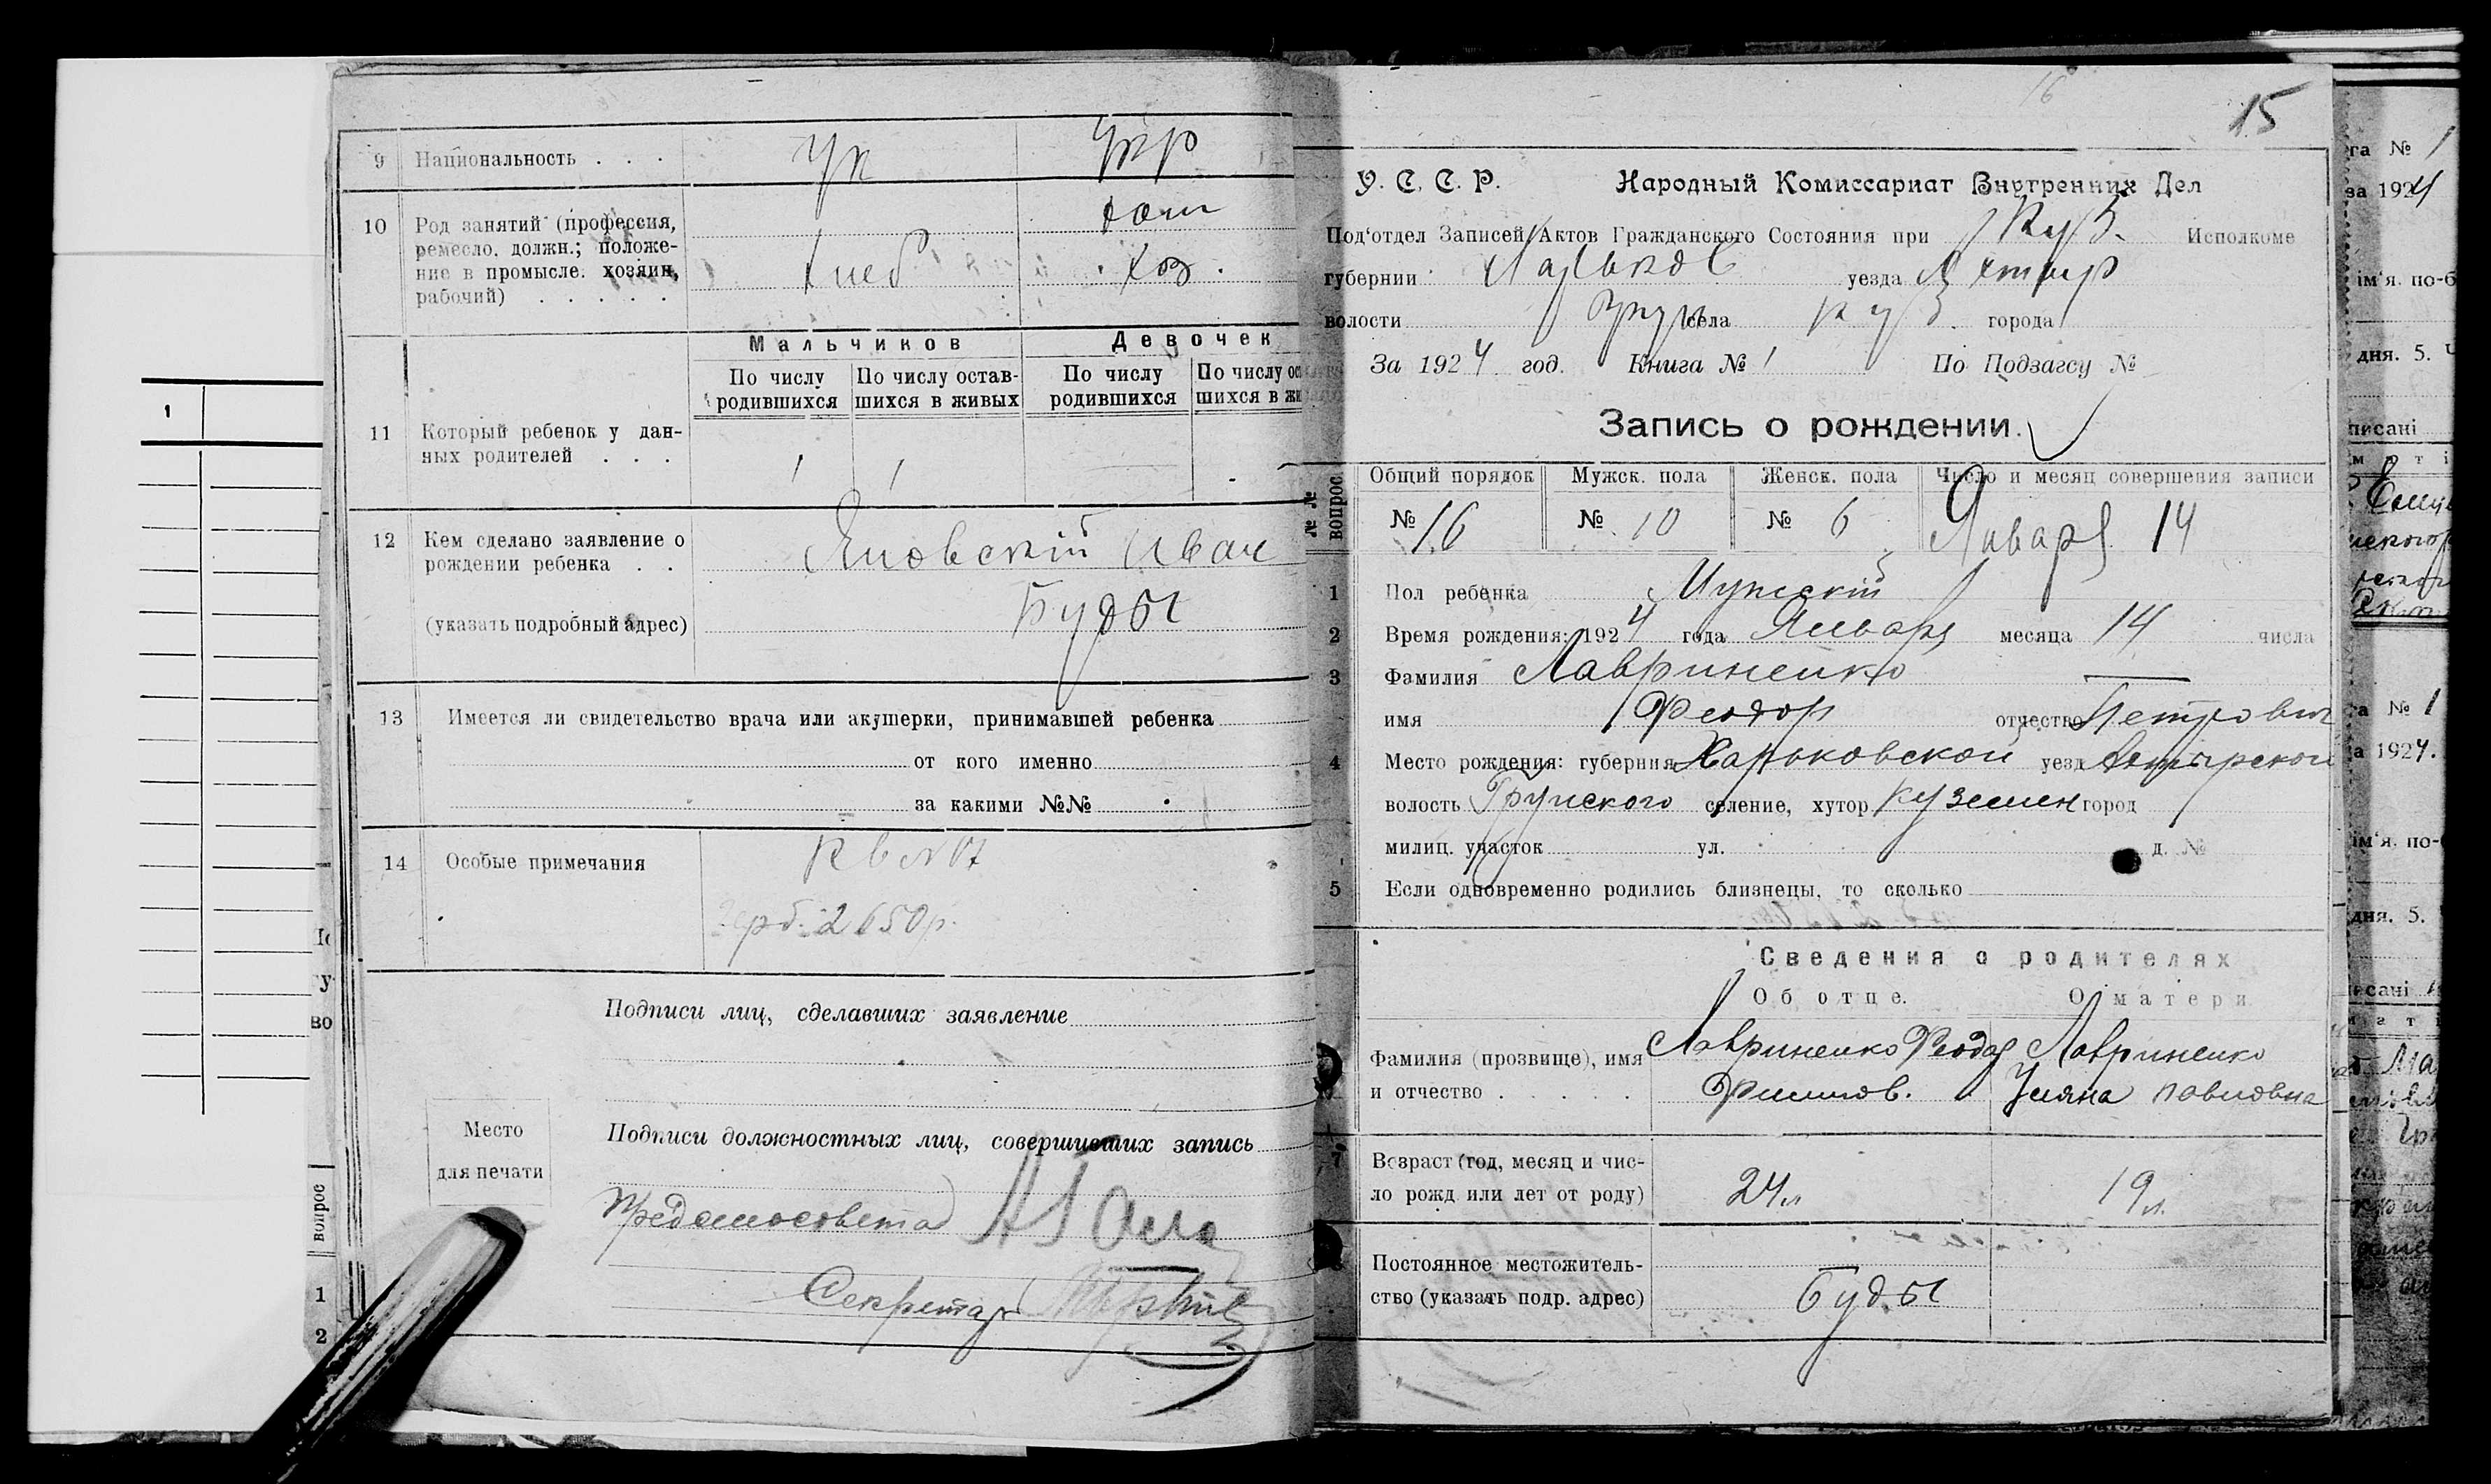 9 Национальность . . . Ук Укр
10 Род занятий (профессия,
ремесло, должн.; положе-
ние в промысле: хозяин,
рабочий) . . . . .
хлеб хоз.
Мальчиков Девочек
По числу родившихся По числу остав-шихся в живых По числу родившихся По числу ос
шихся в жи
11 Который ребенок у дан-
ных родителей . . . 1 1
12 Кем сделано заявление о
рождении ребенка . . Яновский Иван
(указать подробный адрес) Буды
13 Имеется ли свидетельство врача или акушерки, принимавшей ребенка
от кого именно
за какими №№
14 Особые примечания
герб. 2650р.
Подписи лиц, сделавших заявление
Место
для печати
Подписи должностных лиц, совершивших запись
Секретарь
вопрос
1
2
16
15
У. С. С. Р. Народный Комиссариат Внутренних Дел
Под'отдел Записей Актов Гражданского Состояния при Куз. Исполкоме
губернии Харьков уезда Ахтыр
волости Грун села Куз города
За 1924 год. Книга № 1 По Подзагсу №
Запись о рождении.
№№ вопрос
Общий порядок Мужск. пола Женск. пола Число и месяц совершения записи
№ 16 № 10 № 6 Января 14
1 Пол ребенка Мужский
2 Время рождения: 1924 года Января месяца 14 числа
3 Фамилия Лавриненко
имя Феодор отчество Петрович
4 Место рождения: губерния Харьковской уезд Ахтырской
волость Грунского селение, хутор Куземен город
милиц. участок ул. д. №
5 Если одновременно родились близнецы, то сколько
Сведения о родителях
Об отце. О матери
Фамилия (прозвище), имя Лавриненко Феодор Лавриненко
и отчество . . . . . Филипов. Уляна Павловна
7 Возраст (год, месяц и чис-
ло рожд или лет от роду) 24 л 19 л.
Постоянное местожитель-
ство (указать подр. адрес) Буды
га № 1
за 1924
ім'я. по-б
дня. 5.
писані
а № 1
а 1924.
ім'я. по-
дня. 5.